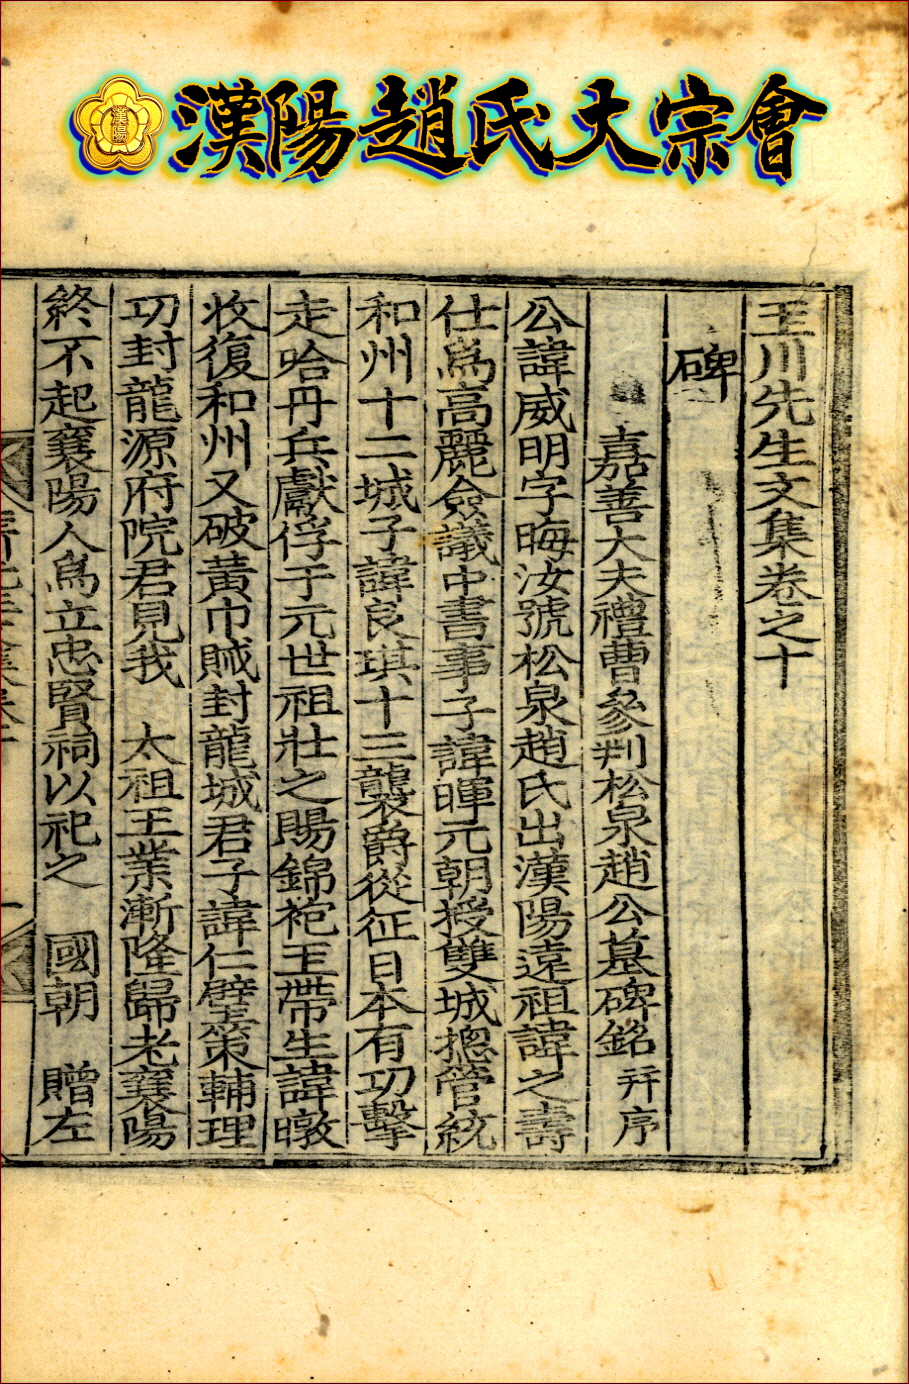 漢陽趙氏大宗會
漢陽
玉川先生文集卷之十
碑
嘉善大夫禮曹參判松泉趙公墓碑銘 幷序
公諱威明字晦汝號松泉趙氏出漢陽遠祖諱之壽
仕爲高麗僉議中書事子諱暉元朝授雙城摠管統
和州十二城子諱良琪十三襲爵從征日本有功擊
走哈丹兵獻俘于元世祖壯之賜錦袍玉帶生諱暾
收復和州又破黃巾賊封龍城君子諱仁璧策輔理
功封龍源府院君見我 太祖王業漸隆歸老襄陽
終不起襄陽人爲立忠賢祠以祀之 國朝 贈左